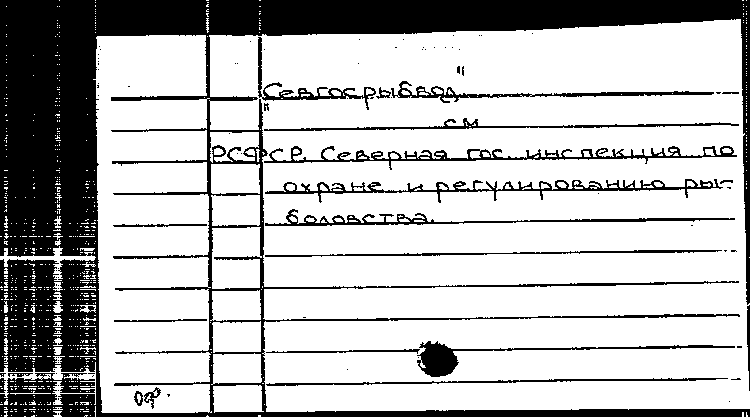 "Севгосрыбвод"
см
РСФСР. Северная гос. инспекция по
охране и регулированию ры-
боловства.